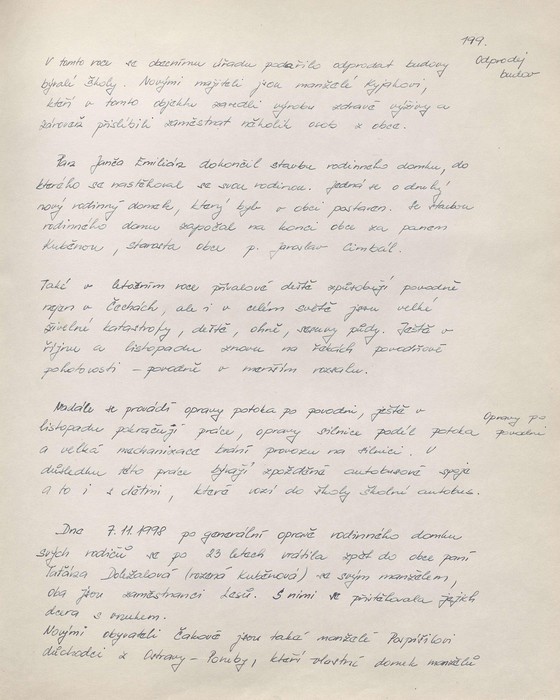 199.
V tomto roce se obecnímu úřadu podařilo odprodat budovy
Odprodej
budov
bývalé školy. Novými majiteli jsou manželé Kyjakovi,
kteří v tomto objektu zavedli výrobu zdravé výživy a
zároveň přislíbili zaměstnat několik osob z obce.
Pan Janča Emilián dokončil stavbu rodinného domku, do
kterého se nastěhoval se svou rodinou. Jedná se o druhý
nový rodinný domek, který byl v obci postaven. Se stavbou
rodinného domu započal na konci obce za panem
Kuběnou, starosta obce p. Jaroslav Cimbál.
Také v letošním roce přívalové deště způsobují povodně
nejen v Čechách, ale i v celém světě jsou velké
živelné katastrofy, deště, ohně, sesuvy půdy. Ještě v
říjnu a listopadu znovu na řekách povodňové
pohotovosti - povodně v menším rozsahu.
Nadále se provádí opravy potoka po povodni, ještě v
Opravy po
povodni
listopadu pokračují práce, opravy silnice podél potoka
a velká mechanizace brání provozu na silnici. V
důsledku této práce bývají zpožděné autobusové spoje
a to i s dětmi, které vozí do školy školní autobus.
Dne 7.11.1998 po generální opravě rodinného domku
svých rodičů se po 23 letech vrátila zpět do obce paní
Taťána Doležalová (rozená Kuběnová) se svým manželem,
oba jsou zaměstnanci Lesů. S nimi se přistěhovala jejich
dcera s vnukem.
Novými obyvateli Čakové jsou také manželé Pospíšilovi
důchodci z Ostravy - Poruby, kteří vlastní domek manželů